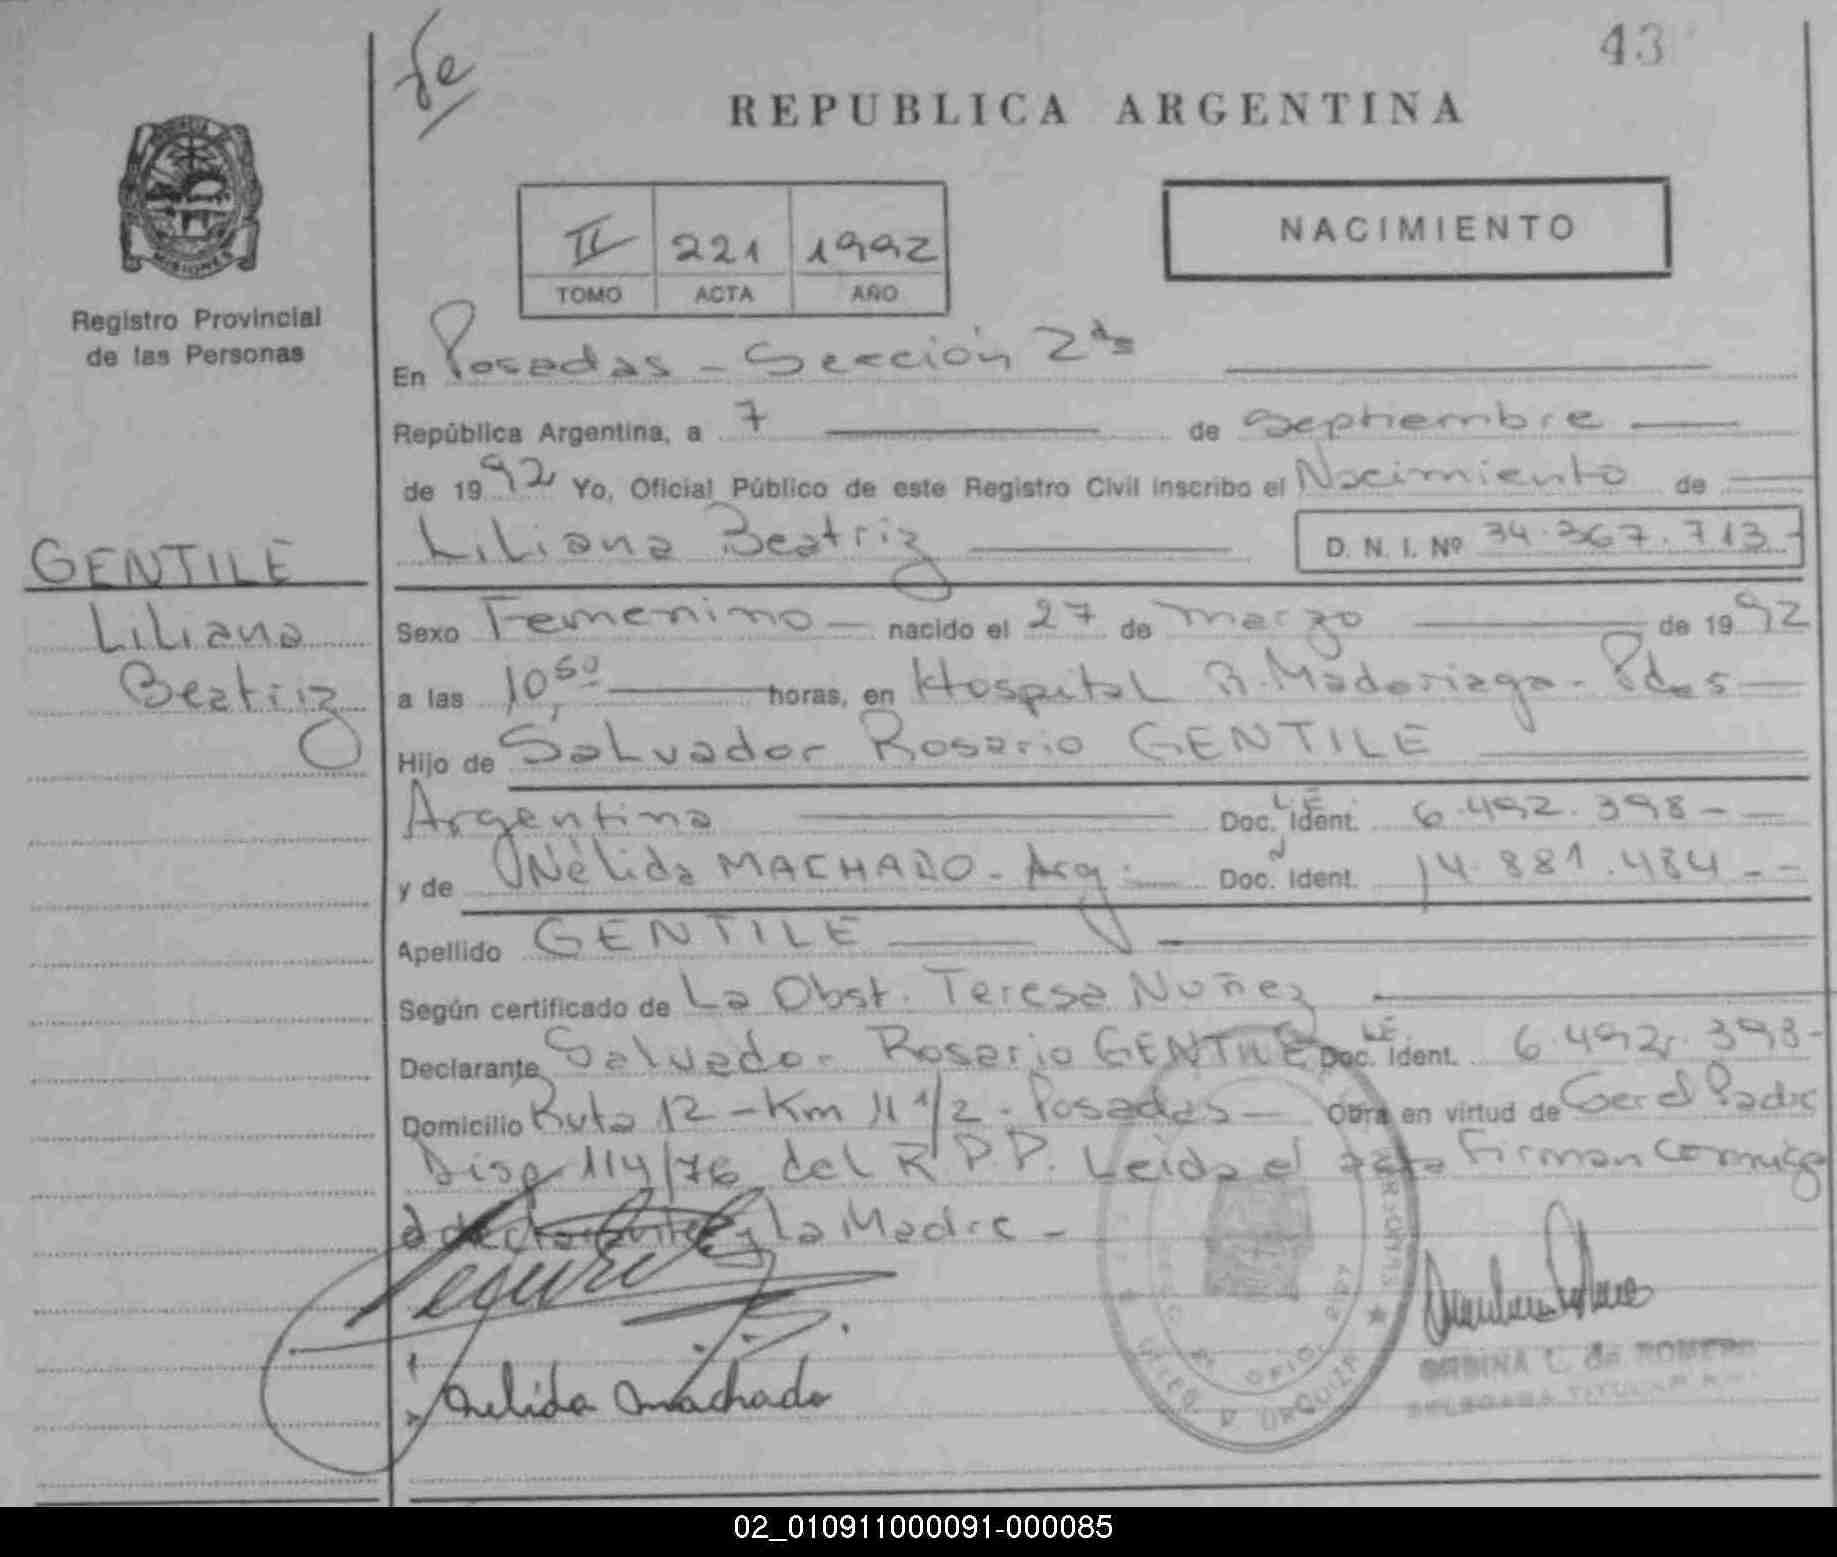 43
REPUBLICA ARGENTINA
II 221 1992
TOMO ACTA AÑO
NACIMIENTO
MISIONES
Registro Provincial
de las Personas
En Posadas - Sección 2da
República Argentina, a 7 de Septiembre
de 1992 Yo, Oficial Público de este Registro Civil inscribo el Nacimiento de
Liliana Beatriz D. N. I. Nº 34.367.713-
GENTILE
Liliana
Beatriz
Sexo Femenino - nacido el 27 de Marzo de 1992
a las 10,50 horas, en Hospital R. Madariaga - Pdas
Hijo de Salvador Rosario GENTILE
Argentina Doc. Ident. L.E. 6.492.398 -
y de Nélida MACHADO - Arg. Doc. Ident. 14.881.484 --
Apellido GENTILE
Según certificado de La Obst. Teresa Nuñez
Declarante Salvador Rosario GENTILE Doc. Ident. L.E. 6.492.398-
Domicilio Ruta 12 - Km 11 1/2 - Posadas - Obra en virtud de Ser el Padre
Disp 114/76 del R.P.P. Leida el acta Firman conmigo
el declarante y la Madre -
Nelida Machado
URQUIZA
DELEGADA TITULAR
02_010911000091-000085